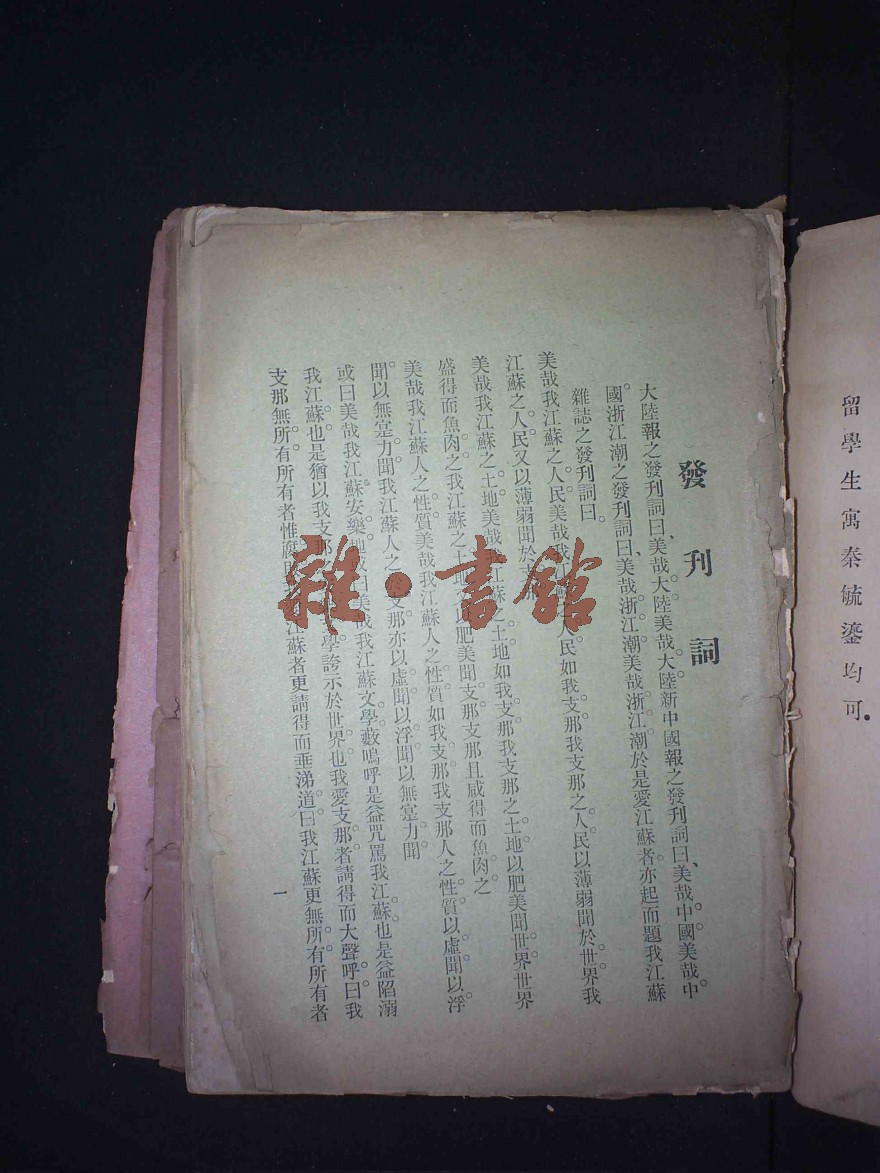 留學生寓秦毓鎏均可。
發刊詞
大陸報之發刊詞曰、美哉大陸美哉。大陸。新中國報之發刊詞曰、美哉中國。美哉中。
國。浙江潮之發刊詞曰、美哉浙江潮美哉浙江潮。於是愛江蘇者亦起而題我江蘇
雜誌之發刊詞曰。
美哉我江蘇之人民美哉我江蘇之人民如我支那我支那之人民以薄弱聞於世界我
江蘇之人民又以薄弱聞於
美哉我江蘇之土地美哉我江蘇之土地如我支那我支那之土地以肥美聞世界世界
盛得而魚肉之我江蘇之土地又以肥美聞支那支那且咸得而魚肉之
美哉我江蘇人之性質美哉我江蘇人之性質如我支那我支那人之性質以虛聞以浮
聞以無寔力聞我江蘇人之支那亦以虛聞以浮聞以無寔力聞
或曰美哉我江蘇安樂地或曰美哉我江蘇文學藪嗚呼是益咒罵我江蘇也是益陷溺
我江蘇也是猶以我支那學誇示於世界也我愛支那者請得而大聲呼曰我
支那無所有所有者惟腐江蘇者更請得而垂涕道曰我江蘇更無所有所有者
一
雜·書館